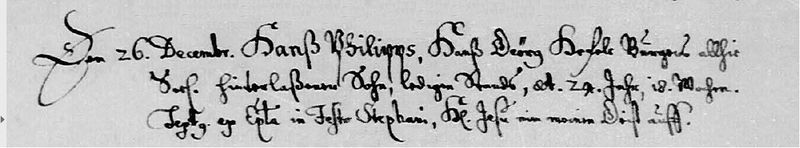 Den 26. Decembr. Hanß Philipps, Hanß Georg Hefele Burgers allhie
Seel. hinterlaßener Sohn, ledigen Stands, æt. 24. Jahr, 18. Wochen.
Text9. ex Epla in Festo Stephani, H. Jesu nim meinen Geist auff.